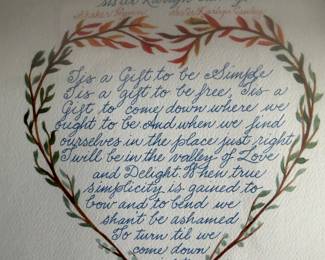 'Tis a Gift to be Simple
'Tis a gift to be free, 'Tis a
Gift to come down where we
ought to be And when we find
ourselves in the place just right
'Twill be in the valley of Love
and Delight. When true
simplicity is gained to
bow and to bend we
shan't be ashamed
To turn til we
come down